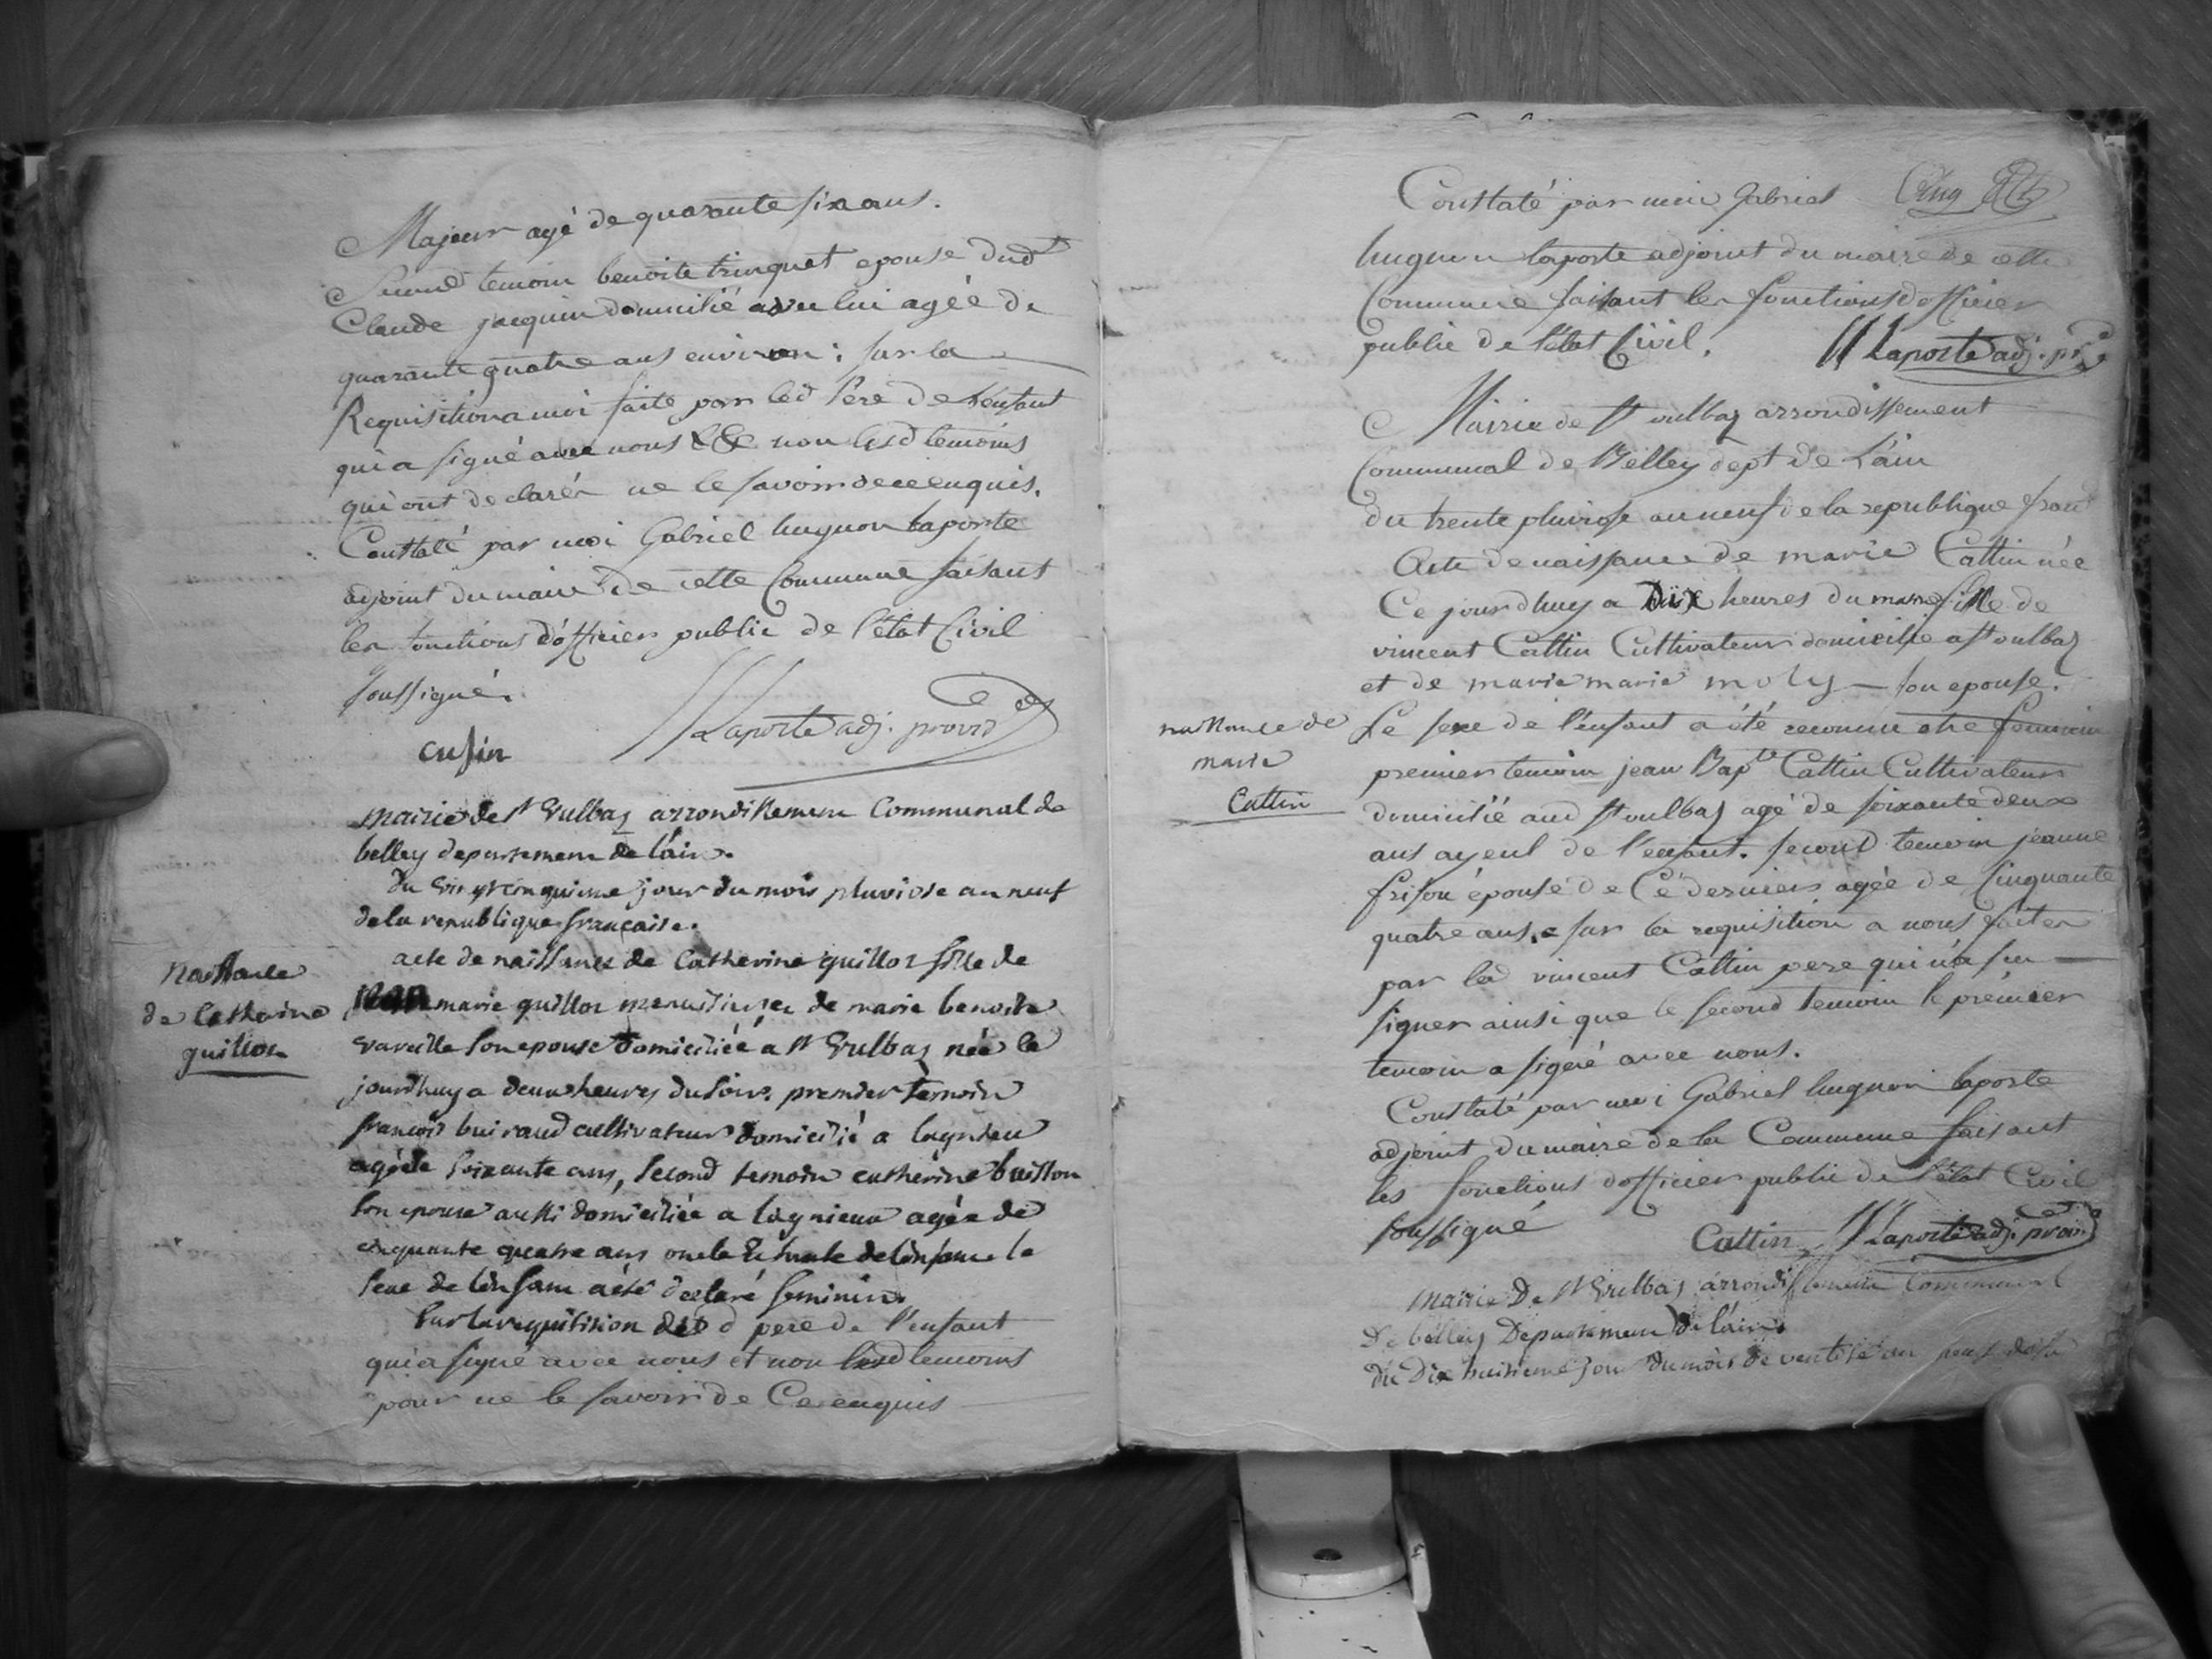 Majeur agé de quarante six ans.
Second temoin benoite trinquet epouse dud
Claude jacquin domicilié avec lui agée de
quarante quatre ans environ; sur la
Requisition a moi faite par led Père de L'enfant
qui a signé avec nous et non lesd temoins
qui ont declarés ne le savoir de ce enquis.
Constaté par moi Gabriel huguon Laporte
adjoint du maire de cette Commune faisant
les fonctions d'officier public de l'état Civil
soussigné.
cusin Laporte adj. provid
mairie de St Vulbas arrondissement Communal de
belley departement de l'ain.
du vingt cinquieme jour du mois pluviose an neuf
de la republique française.
acte de naissance de Catherine quillot fille de
marie quillot menuisier et de marie benoite
son epouse domiciliée a St Vulbas née le
jourdhuy a deux heures du soir. premier temoin
françois buiraud cultivateur domicilié a lagnieu
agé de soixante ans, second temoin catherine
son epouse aussi domiciliée a lagnieux agée de
cinquante quatre ans oncle et tante de l'enfant le
sexe de l'enfant a été declaré feminin.
Sur la requisition dud pere de l'enfant
qui a signé avec nous et non lesd temoins
pour ne le savoir de Ce enquis
naissance
de Catherine
quillot
Constaté par moi Gabriel Cinq
huguon laporte adjoint du maire de cette
Commune faisant les fonctions d'officier
public de l'état Civil. Laporte adj. pr
Mairie de St vulbas arrondissement
Communal de Belley dept de L'ain
du trente pluviose an neuf de la republique
Acte de naissance de marie Cattin née
Ce jourdhuy a Dix heures du fille de
vincent Cattin Cultivateur domicilié a St vulbas
et de marie marie moly son epouse.
naissance de
marie
Cattin
Le sexe de l'enfant a été reconnu etre feminin
premier temoin jean Bapte Cattin Cultivateur
domicilié aud St vulbas agé de soixante deux
ans ayeul de l'enfant. second temoin jeanne
frison épouse de Ce dernier agée de Cinquante
quatre ans. sur la requisition a nous faites
par led vincent Cattin pere qui n'a su
signer ainsi que le second temoin le prémier
temoin a signé avec nous.
Constaté par moi Gabriel huguon laporte
adjoint du maire de la Commune faisant
les fonctions d'officier public de l'état Civil
soussigné Cattin Laporte adj. provid
mairie De St Vulbas arrondissement Communal
De belley Departement de l'ain.
du Dix huitieme jour du mois de ventose an neuf de la